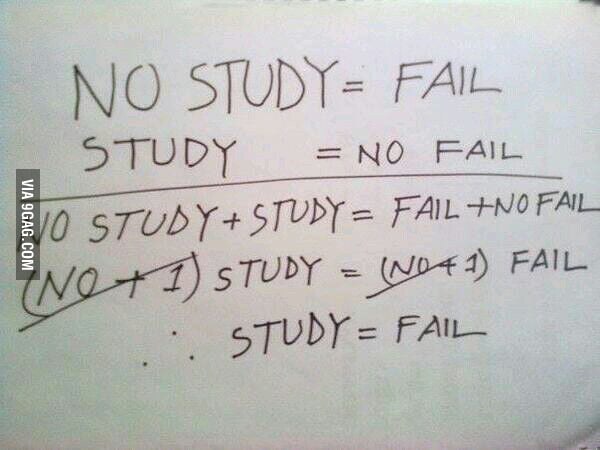 NO STUDY = FAIL
STUDY = NO FAIL
NO STUDY + STUDY = FAIL + NO FAIL
(NO + 1) STUDY = (NO + 1) FAIL
∴ STUDY = FAIL
VIA 9GAG.COM